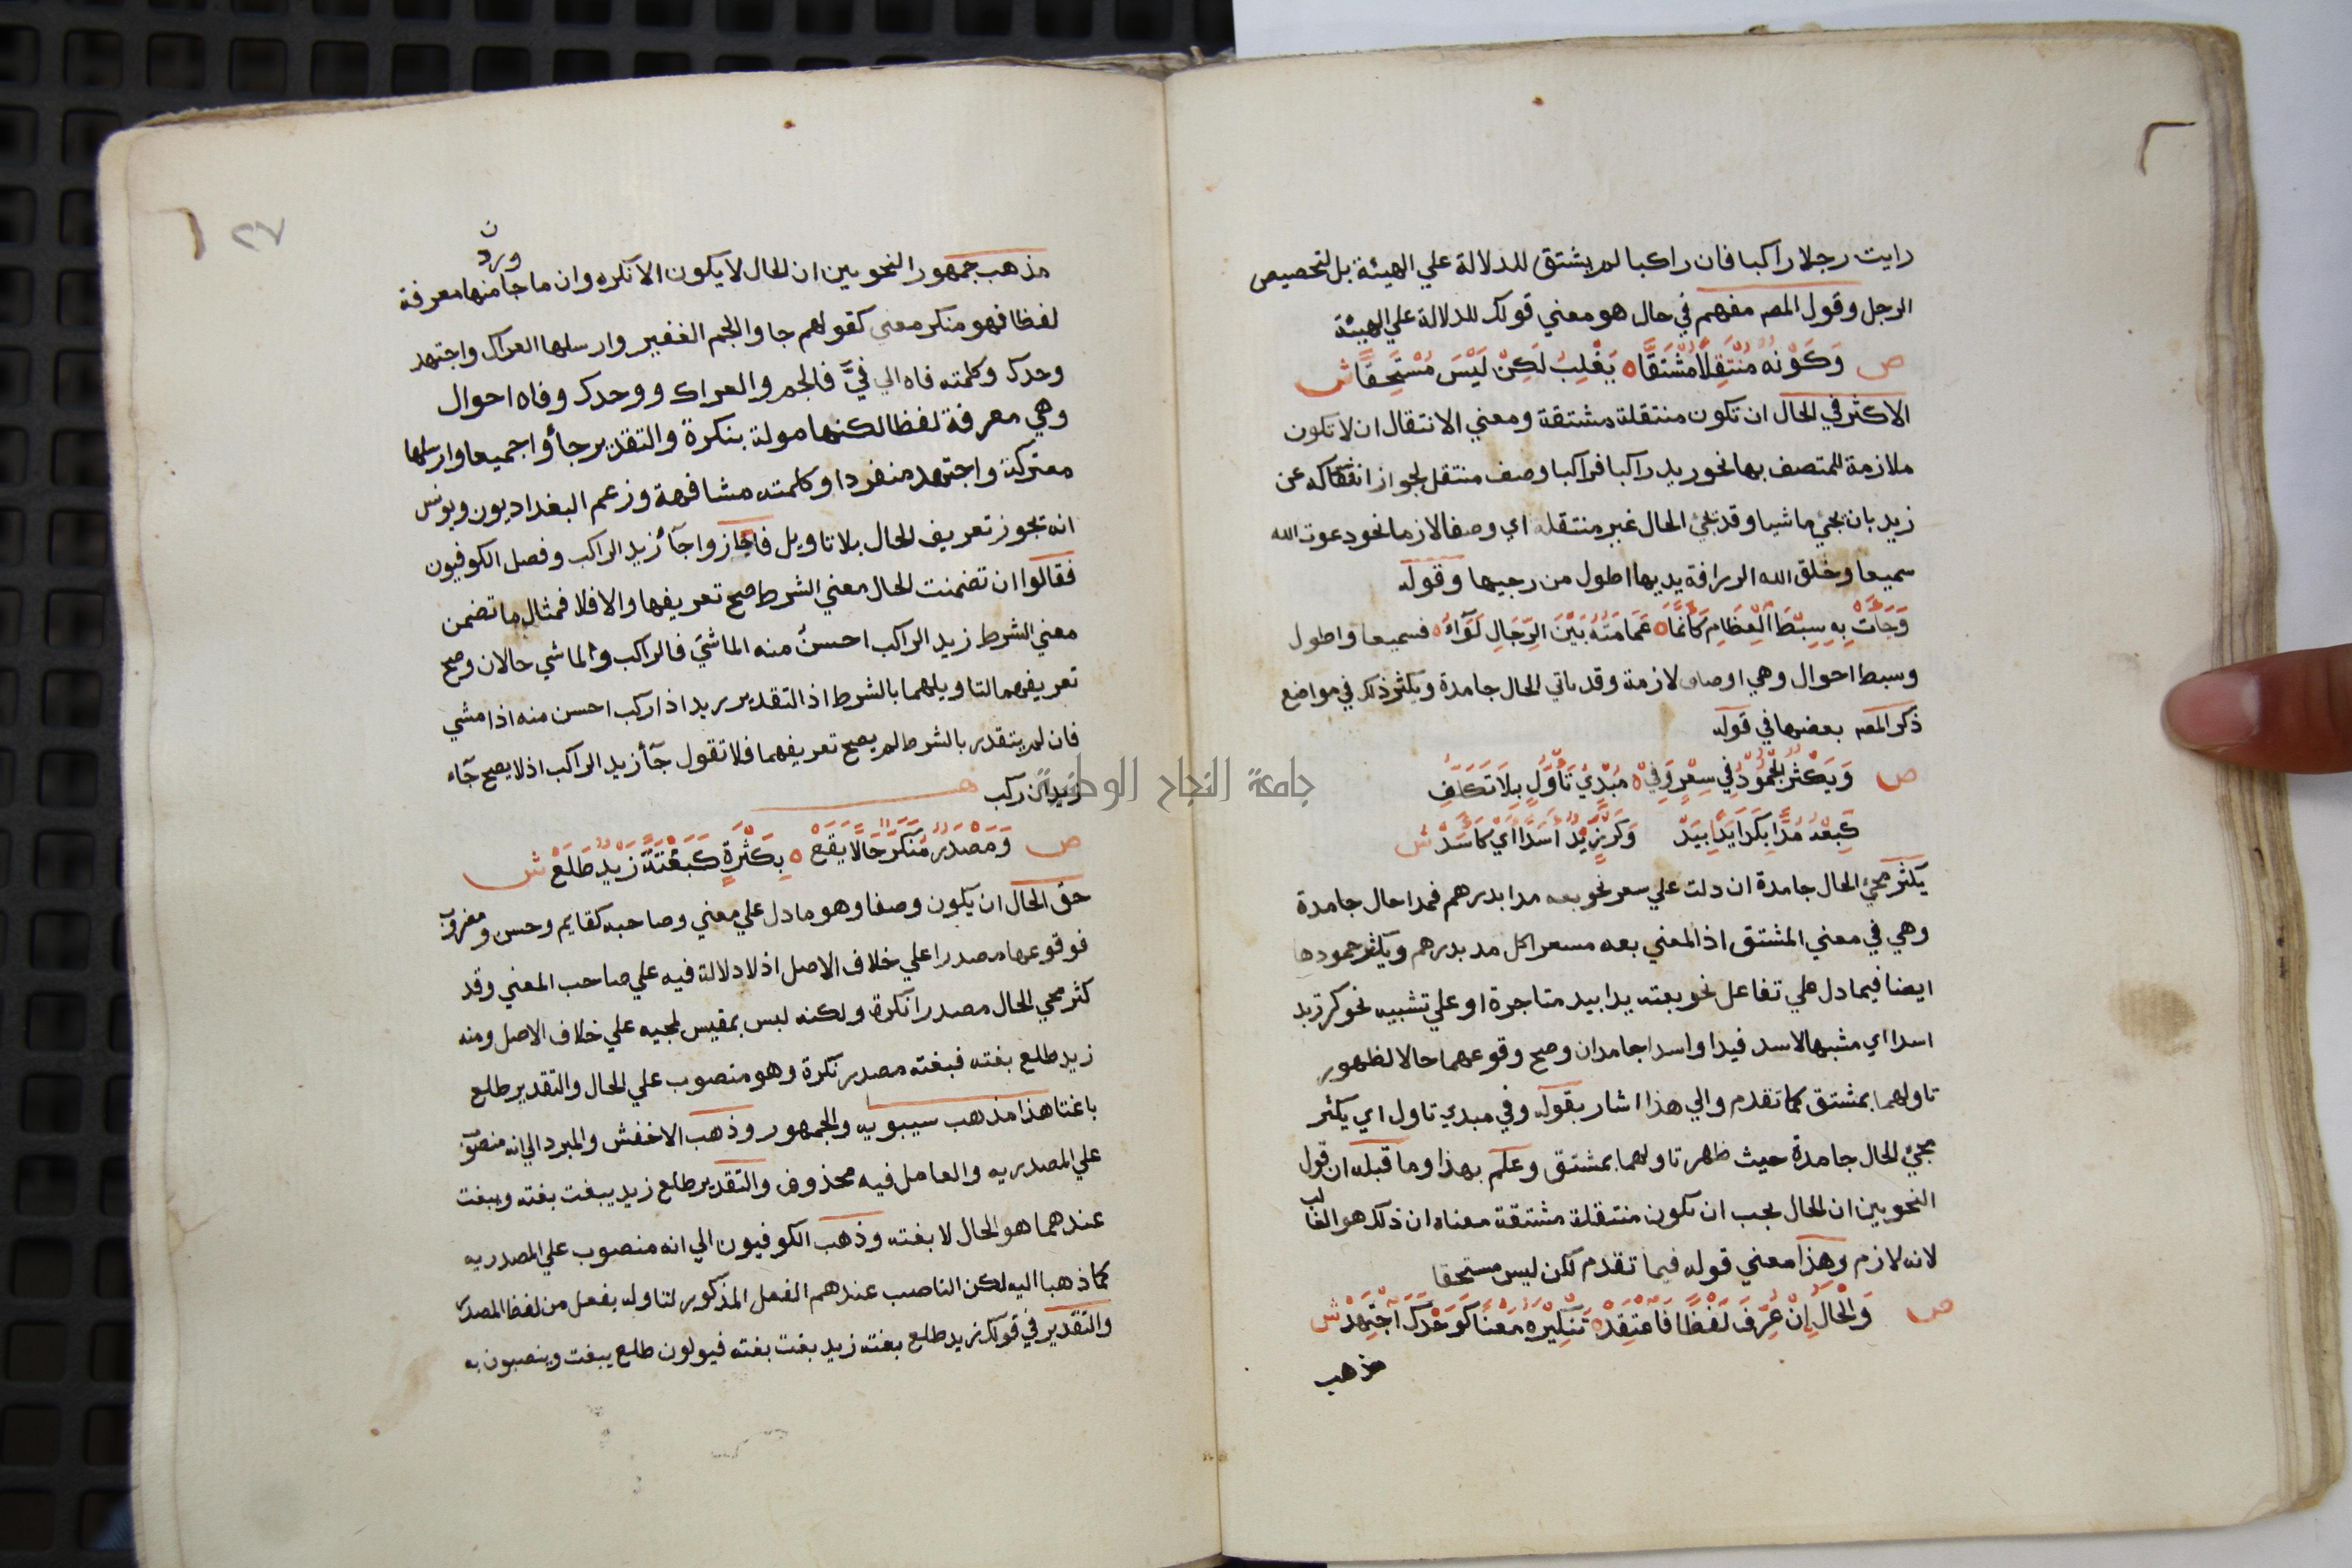 رايت رجلا راكبا فان راكبا لم يشتق للدلالة علي الهيئة بل لتخصيص
الرجل وقول المصـ مفهم في حال هو معني قولك للدلالة علي الهيئة
ص وَكَوْنُهُ مُنْتَقِلًا مُشْتَقًّا ه يَغْلِبُ لَكِنْ لَيْسَ مُسْتَحِقًّا ش
الاكثر في الحال ان تكون منتقلة مشتقة ومعني الانتقال ان لا تكون
ملازمة للمتصف بها نحو زيد راكبا فراكبا وصف منتقل لجواز انفكاكه عن
زيد بان يجئ ماشيا وقد يجئ الحال غير منتقله اي وصفا لازما نحو دعوت الله
سميعا وخلق الله الزرافة يديها اطول من رجيها وقوله
وَجَاتْ بِهِ سِبْطَ الْعِظَامِ كَأَنَّمَا ه عَمَامَتُهُ بَيْنَ الرِّجَالِ لَوَآءُ ه فسميعا واطول
وسبط احوال وهي اوصاف لازمة وقد ياتي الحال جامدة ويكثر ذلك في مواضع
ذكر المصـ بعضها في قوله
ص وَيَكْثُرُ الْجُمُودُ فِي سِعْرٍ وَفِي ه مُبْدِي تَأَوُّلٍ بِلَا تَكَلُّفِ
كَبِعْهُ مُدًّا بِكَذَا يَدًا بِيَدْ وَكَرَّ زَيْدٌ أَسَدًا أَيْ كَأَسَدْ ش
يكثر مجئ الحال جامدة ان دلت علي سعر نحو بعه مدا بدرهم فمدا حال جامدة
وهي في معني المشتق اذ المعني بعه مسعرا كل مد بدرهم ويكثر جمودها
ايضا فيما دل علي تفاعل نحو بعته يدا بيد متاجرة او علي تشبيه نحو كر زيد
اسدا اي مشبها الاسد فيدا واسدا جامدان وصح وقوعهما حالا لظهور
تاولهما بمشتق كما تقدم والي هذا اشار بقوله وفي مبدي تاول اي يكثر
مجئ الحال جامدة حيث ظهر تاولهما بمشتق وعلم بهذا وما قبله ان قول
النحويين ان الحال يجب ان تكون منتقلة مشتقة معناه ان ذلك هو الغالب
لانه لازم وهذا معني قوله فيما تقدم لكن ليس مستحقا
ص وَالْحَالُ إِنْ عُرِّفَ لَفْظًا فَاعْتَقِدْ ه تَنْكِيرَهُ مَعْنًا كَوَحْدَكَ اجْتَهِدْ ش
مذهب
٢٧
مذهب جمهور النحويين ان الحال لا يكون الا نكره وان ما جا منها معرفة
ورد ن
لفظا فهو منكر معني كقولهم جاوا الجم الغفير وارسلها العراك واجتهد
وحدك وكلمته فاه الي فيَّ فالجم والعراك ووحدك وفاه احوال
وهي معرفة لفظا لكنها مولة بنكرة والتقدير جاؤا جميعا وارسلها
معتركة واجتهد منفردا وكلمته مشافهة وزعم البغداديون ويونس
انه تجوز تعريف الحال بلا تاويل فاجازوا جآ زيد الراكب وفصل الكوفيون
فقالوا ان تضمنت الحال معني الشرط صح تعريفها والا فلا فمثال ما تضمن
معني الشرط زيد الراكب احسن منه الماشي فالراكب والماشي حالان وصح
تعريفهما لتاويلهما بالشرط اذ التقدير زيد اذا ركب احسن منه اذا مشي
فان لم يتقدر بالشرط لم يصح تعريفهما فلا تقول جآ زيد الراكب اذ لا يصح جآء
زيد ان ركب
ص وَمَصْدَرٌ مُنَكَّرٌ حَالًا يَقَعْ ه بِكَثْرَةٍ كَبَغْتَةً زَيْدٌ طَلَعْ ش
حق الحال ان يكون وصفا وهو ما دل علي معني وصاحبه كقايم وحسن ومضروب
فوقوعها مصدرا علي خلاف الاصل اذ لا دلالة فيه علي صاحب المعني وقد
كثر مجي الحال مصدرا نكرة ولكنه ليس بمقيس لمجيه علي خلاف الاصل ومنه
زيد طلع بغته فبغته مصدر نكرة وهو منصوب علي الحال والتقدير طلع
باغتا هذا مذهب سيبويه والجمهور وذهب الاخفش والمبرد الي انه منصوب
علي المصدريه والعامل فيه محذوف والتقدير طلع زيد يبغت بغته ويبغت
عندهما هو الحال لا بغته وذهب الكوفيون الي انه منصوب علي المصدريه
كما ذهبا اليه لكن الناصب عندهم الفعل المذكور لتاوله بفعل من لفظ المصدر
والتقدير في قولك زيد طلع بغته زيد بغت بغته فيولون طلع يبغت وينصبون به
جامعة النجاح الوطنية